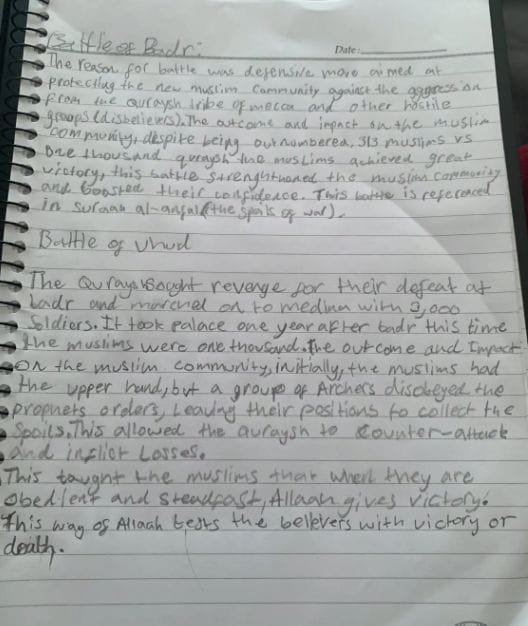 Battle of Badr:
Date:
The reason for battle was defensive move aimed at
protecting the new muslim community against the aggression
from the quraysh tribe of mecca and other hostile
groups (disbelievers). The outcome and impact on the muslim
community, despite being outnumbered, 313 muslims vs
one thousand quraysh the muslims achieved great
victory, this battle strenghthoned the muslim community
and boosted their confidence. This battle is referenced
in suraah al-anfal (the spoils of war).
Battle of Uhud
The Quraysh sought revenge for their defeat at
badr and marched on to medina with 3,000
Soldiers. It took palace one year after badr this time
the muslims were one thousand. The outcome and Impact
on the muslim community, initially, the muslims had
the upper hand, but a group of Archers disobeyed the
prophets orders, Leaving their positions to collect the
Spoils. This allowed the quraysh to Counter-attack
and inflict Losses.
This taught the muslims that when they are
obedient and steadfast, Allaah gives victory.
This way of Allaah tests the believers with victory or
death.